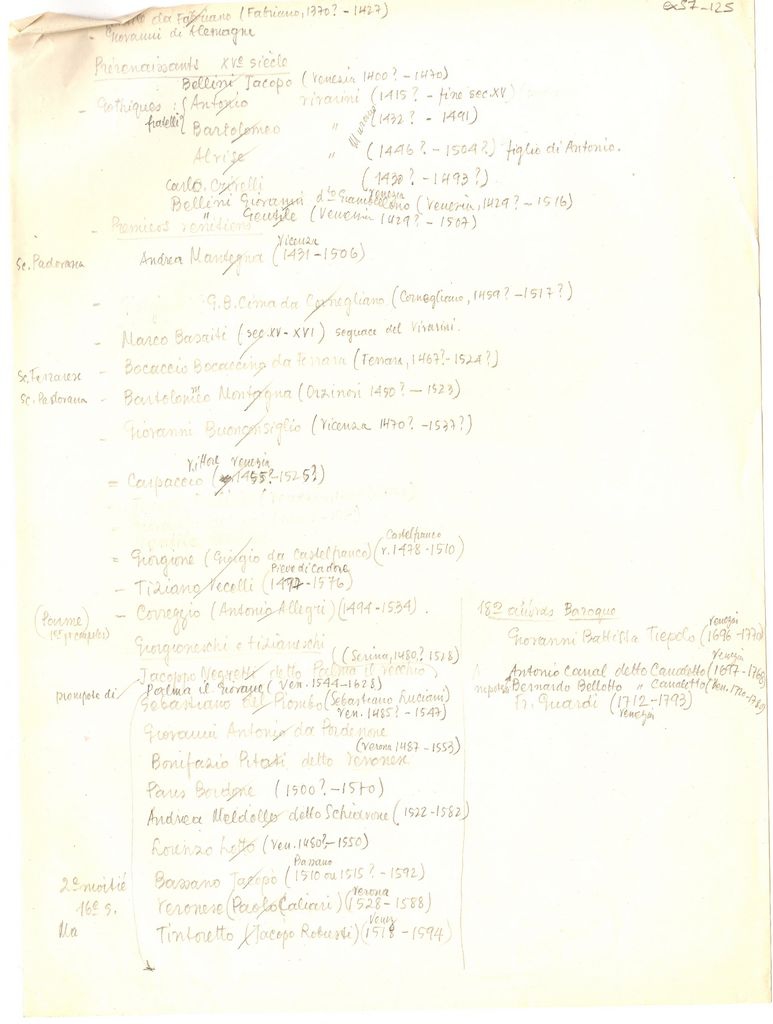 Gentile da Fabriano (Fabriano, 1370? - 1427)
- Giovanni di Alemagna
Prérenaissants XVe siècle
Bellini Jacopo (Venezia 1400? - 1470)
- Gothiques : Antonio Vivarini (1415? - fine sec. XV)
fratelli Bartolomeo " (1432? - 1491)
Murano
Alvise " (1446? - 1504?) figlio di Antonio.
Carlo Crivelli (1430? - 1493?)
Venezia
Bellini Giovanni dto Giambellino (Venezia, 1429? - 1516)
" Gentile (Venezia 1429? - 1507)
- Premices vénitiens
Vicenza
Sc. Padovana Andrea Mantegna (1431-1506)
- G.B. Cima da Cornegliano (Cornegliano, 1459? - 1517?)
- Marco Basaiti (sec. XV - XVI) seguace del Vivarini.
- Bocaccio Bocaccino da Ferrara (Ferrara, 1467? - 1524?)
Sc. Ferrarese
Sc. Padovana - Bartolomeo Montagna (Orzinori 1450? - 1523)
- Giovanni Buonconsiglio (Vicenza 1470? - 1537?)
Vittore Venezia
= Carpaccio (1455? - 1525?)
Castelfranco
= Giorgione (Giorgio da Castelfranco) (v. 1478 - 1510)
Pieve di Cadore
- Tiziano Vecelli (1497 - 1576)
(Parme) - Correggio (Antonio Allegri) (1494 - 1534).
Giorgioneschi e tizianeschi
Jacoppo Negretti detto Palma il Vecchio (Serina, 1480? 1528)
Palma il Giovane (Ven. 1544 - 1628)
Sebastiano del Piombo (Sebastiano Luciani)
Ven. 1485? - 1547)
Giovanni Antonio da Pordenone
(Verona 1487 - 1553)
Bonifazio Pitati detto Veronese
Paris Bordone (1500? - 1570)
Andrea Meldolla detto Schiavone (1522 - 1582)
Lorenzo Lotto (Ven. 1480? - 1550)
Bassano
2e moitié Bassano Jacopo (1510 ou 1515? - 1592)
Verona
16e s. Veronese (Paolo Caliari) (1528 - 1588)
Venez
Tintoretto (Jacopo Robusti) (1518 - 1594)
Baroque
Venezia
Giovanni Battista Tiepolo (1696 - 1770)
Venezia
Antonio Canal detto Canaletto (1697 - 1768)
Bernardo Bellotto " Canaletto (Ven. 1720 - 1780)
Fr. Guardi (1712 - 1793)
Venezia